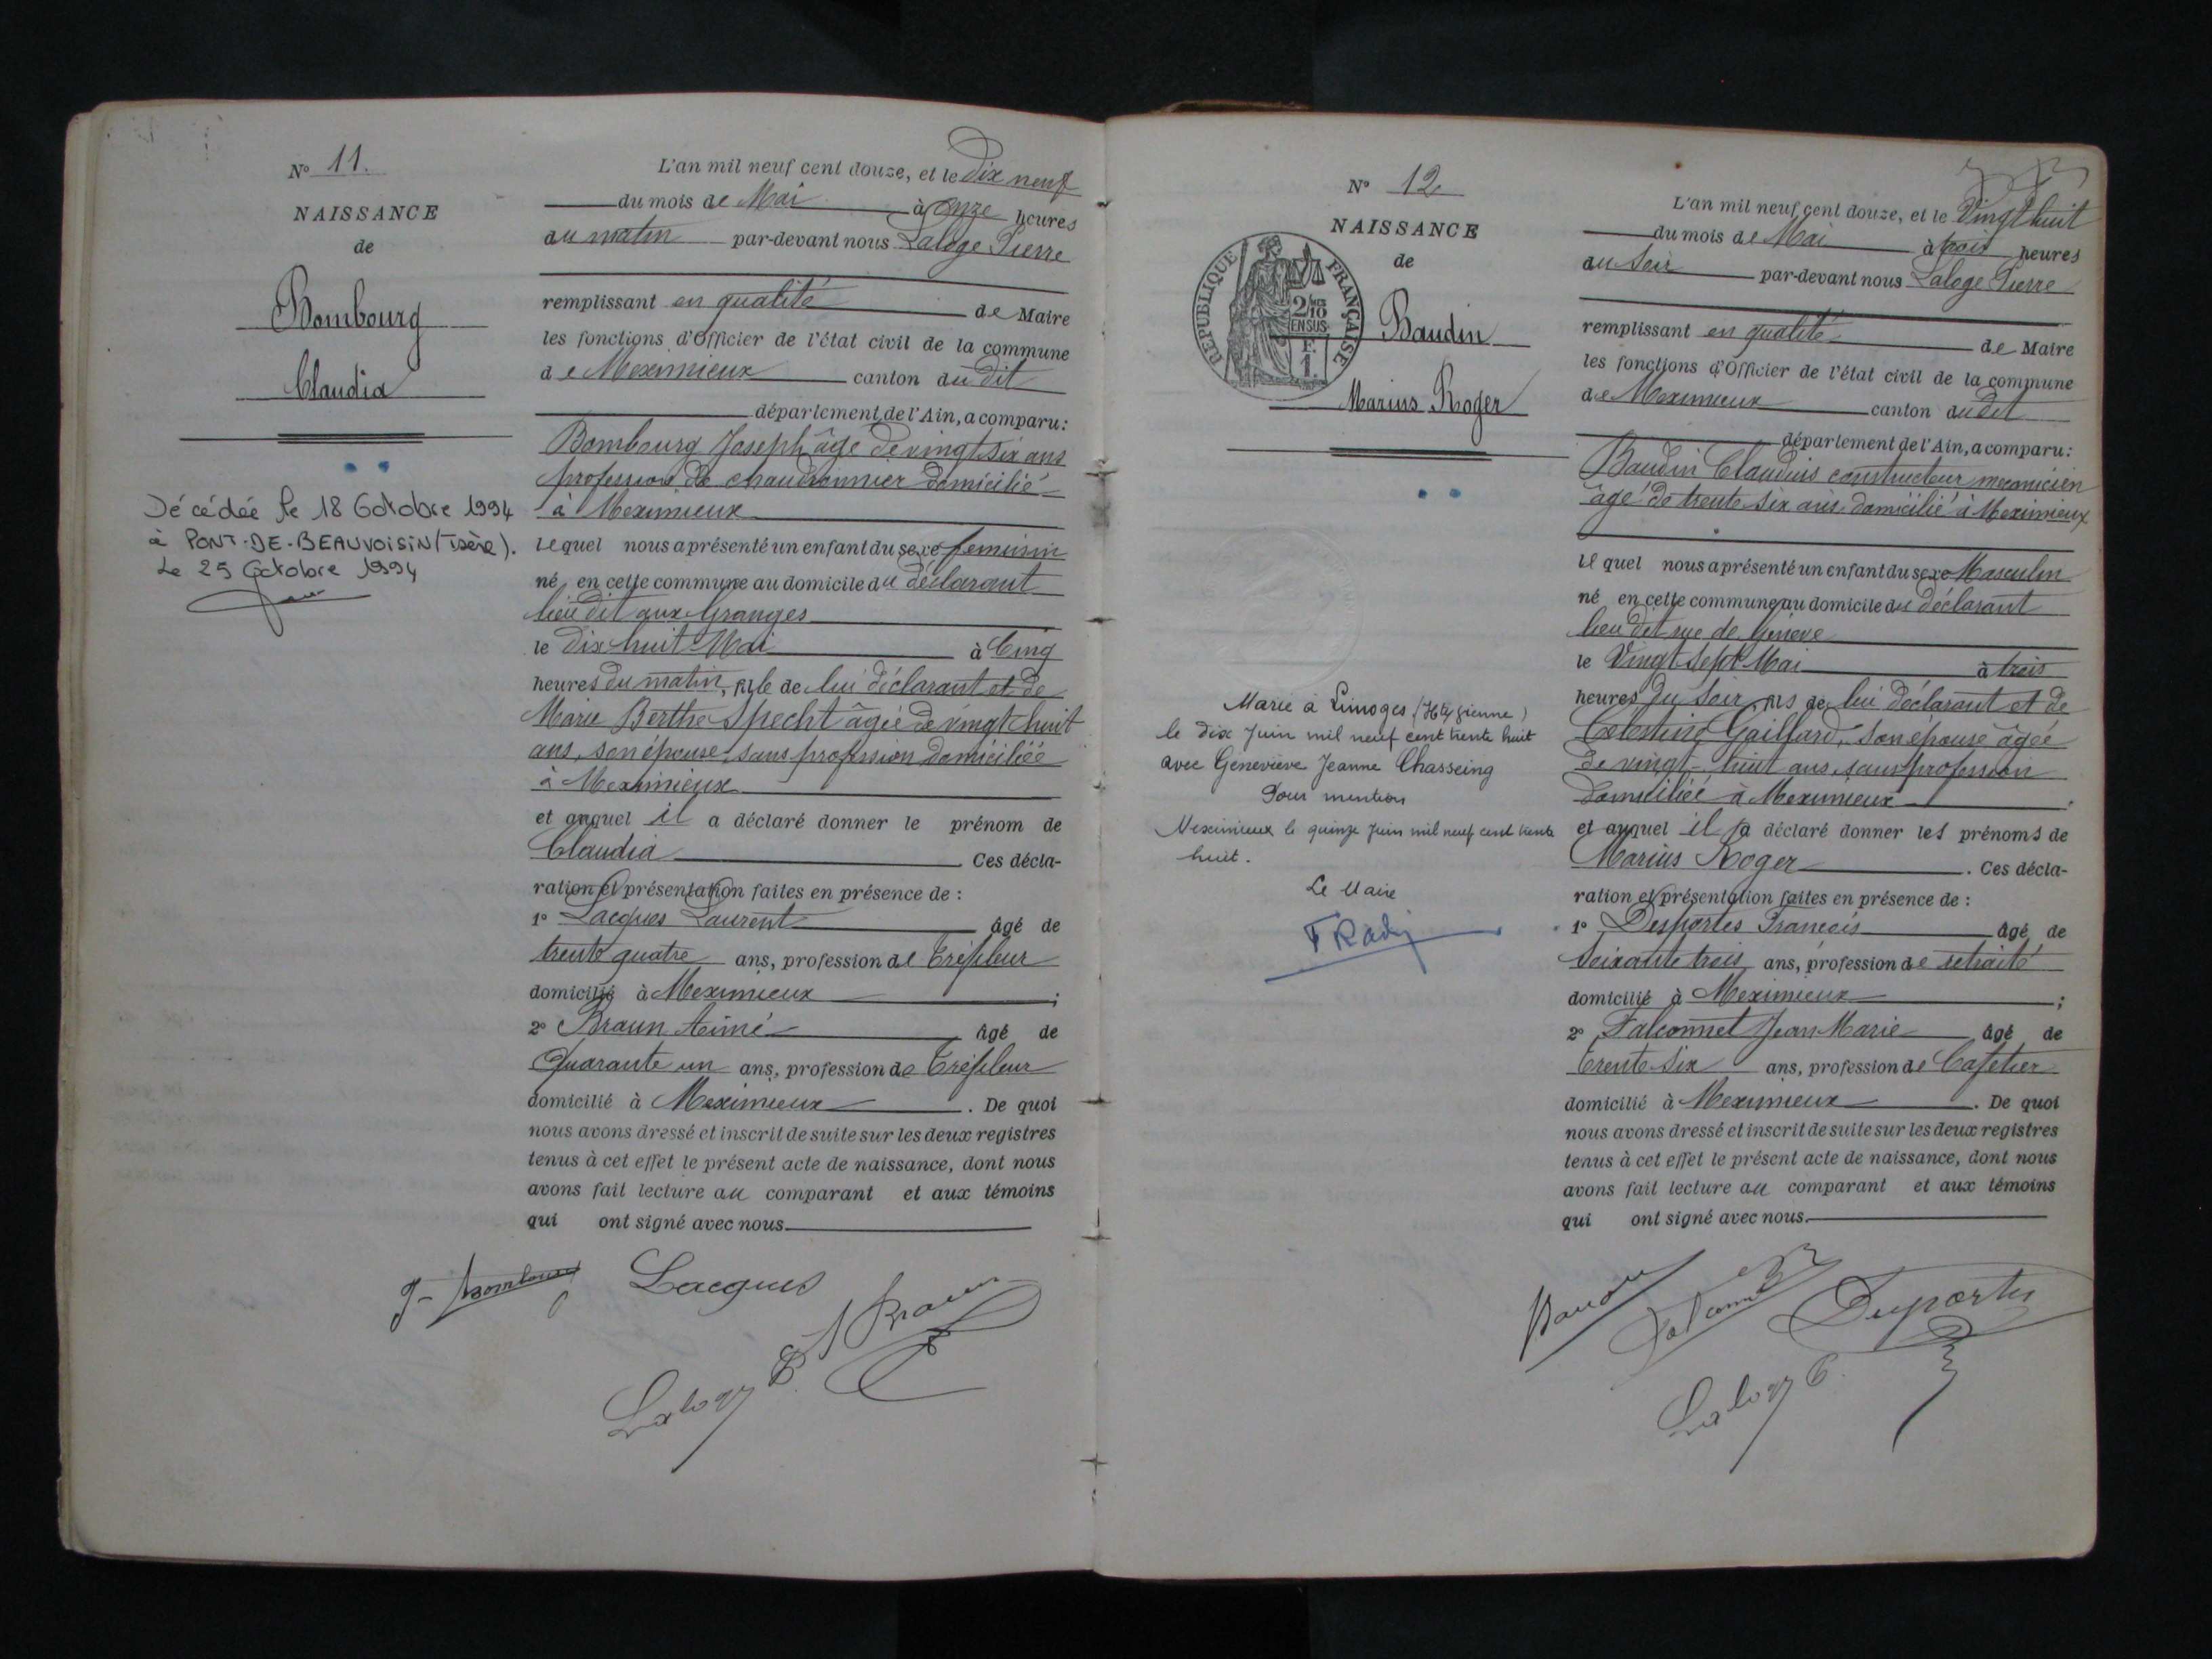 N° 11.
NAISSANCE
de
Bombourg
Claudia
Décédée le 18 Octobre 1994
à PONT-DE-BEAUVOISIN (Isère).
Le 25 Octobre 1994
L'an mil neuf cent douze, et le Dix neuf
du mois de Mai à Onze heures
du matin par-devant nous Laloge Pierre
remplissant en qualité de Maire
les fonctions d'Officier de l'état civil de la commune
de Meximieux canton du dit
département de l'Ain, a comparu :
Bombourg Joseph âgé de vingt six ans
profession de chaudronnier domicilié
à Meximieux
lequel nous a présenté un enfant du sexe feminin
né, en cette commune au domicile du déclarant
lieu dit aux Granges
le Dix huit Mai à Cinq
heures du matin, fille de lui déclarant et de
Marie Berthe Specht âgée de vingt huit
ans, son épouse sans profession domiciliée
à Meximieux
et auquel il a déclaré donner le prénom de
Claudia Ces décla-
ration et présentation faites en présence de :
1° Lacques Laurent âgé de
trente quatre ans, profession de Tréfileur
domicilié à Meximieux ;
2° Braun Aimé âgé de
Quarante un ans, profession de Tréfileur
domicilié à Meximieux . De quoi
nous avons dressé et inscrit de suite sur les deux registres
tenus à cet effet le présent acte de naissance, dont nous
avons fait lecture au comparant et aux témoins
qui ont signé avec nous.
J. Bombourg Lacques
A Braun
Laloge P.
N° 12
NAISSANCE
de
REPUBLIQUE FRANÇAISE
2/10
EN SUS
F.
1.
Baudin
Marius Roger
Marié à Limoges (Hte Vienne)
le dix Juin mil neuf cent trente huit
avec Geneviève Jeanne Chasseing
Pour mention
Meximieux le quinze Juin mil neuf cent trente
huit.
Le Maire
L'an mil neuf cent douze, et le Vingt huit
du mois de Mai à trois heures
du Soir par-devant nous Laloge Pierre
remplissant en qualité de Maire
les fonctions d'Officier de l'état civil de la commune
de Meximieux canton du dit
département de l'Ain, a comparu :
Baudin Claudius constructeur mecanicien
âgé de trente six ans domicilié à Meximieux
lequel nous a présenté un enfant du sexe Masculin
né en cette commune au domicile du déclarant
lieu dit rue de Genève
le Vingt Sept Mai à trois
heures du Soir, fils de lui déclarant et de
Célestine Gaillard, son épouse âgée
de vingt-huit ans, sans profession
domiciliée à Meximieux .
et auquel il a déclaré donner les prénoms de
Marius Roger . Ces décla-
ration et présentation faites en présence de :
1° Desportes Francois âgé de
Soixante trois ans, profession de retraité
domicilié à Meximieux ;
2° Falconnet Jean Marie âgé de
Trente six ans, profession de Cafetier
domicilié à Meximieux . De quoi
nous avons dressé et inscrit de suite sur les deux registres
tenus à cet effet le présent acte de naissance, dont nous
avons fait lecture au comparant et aux témoins
qui ont signé avec nous.
Baudin Falconnet Desportes
Laloge P.